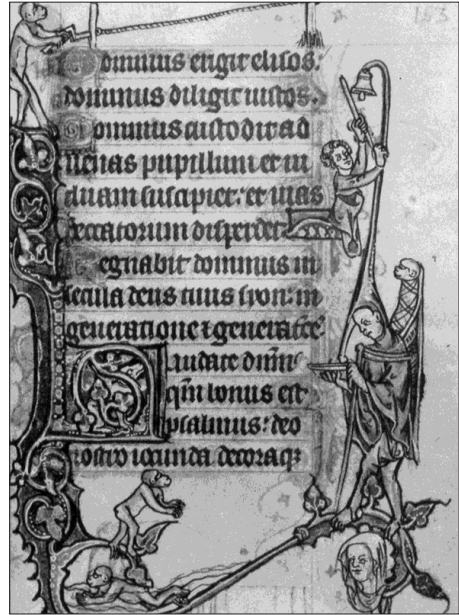 Dominus erigit elisos:
dominus diligit iustos.
Dominus custodit ad
uenas pupillum et ui
duam suscipiet: et uias
peccatorum disperdet.
Regnabit dominus in
secula deus tuus syon: in
generatione ⁊ generatiōe
Laudate dn̄m
qm̄ bonus est
psalmus: deo
nostro iocunda decoraqꝫ